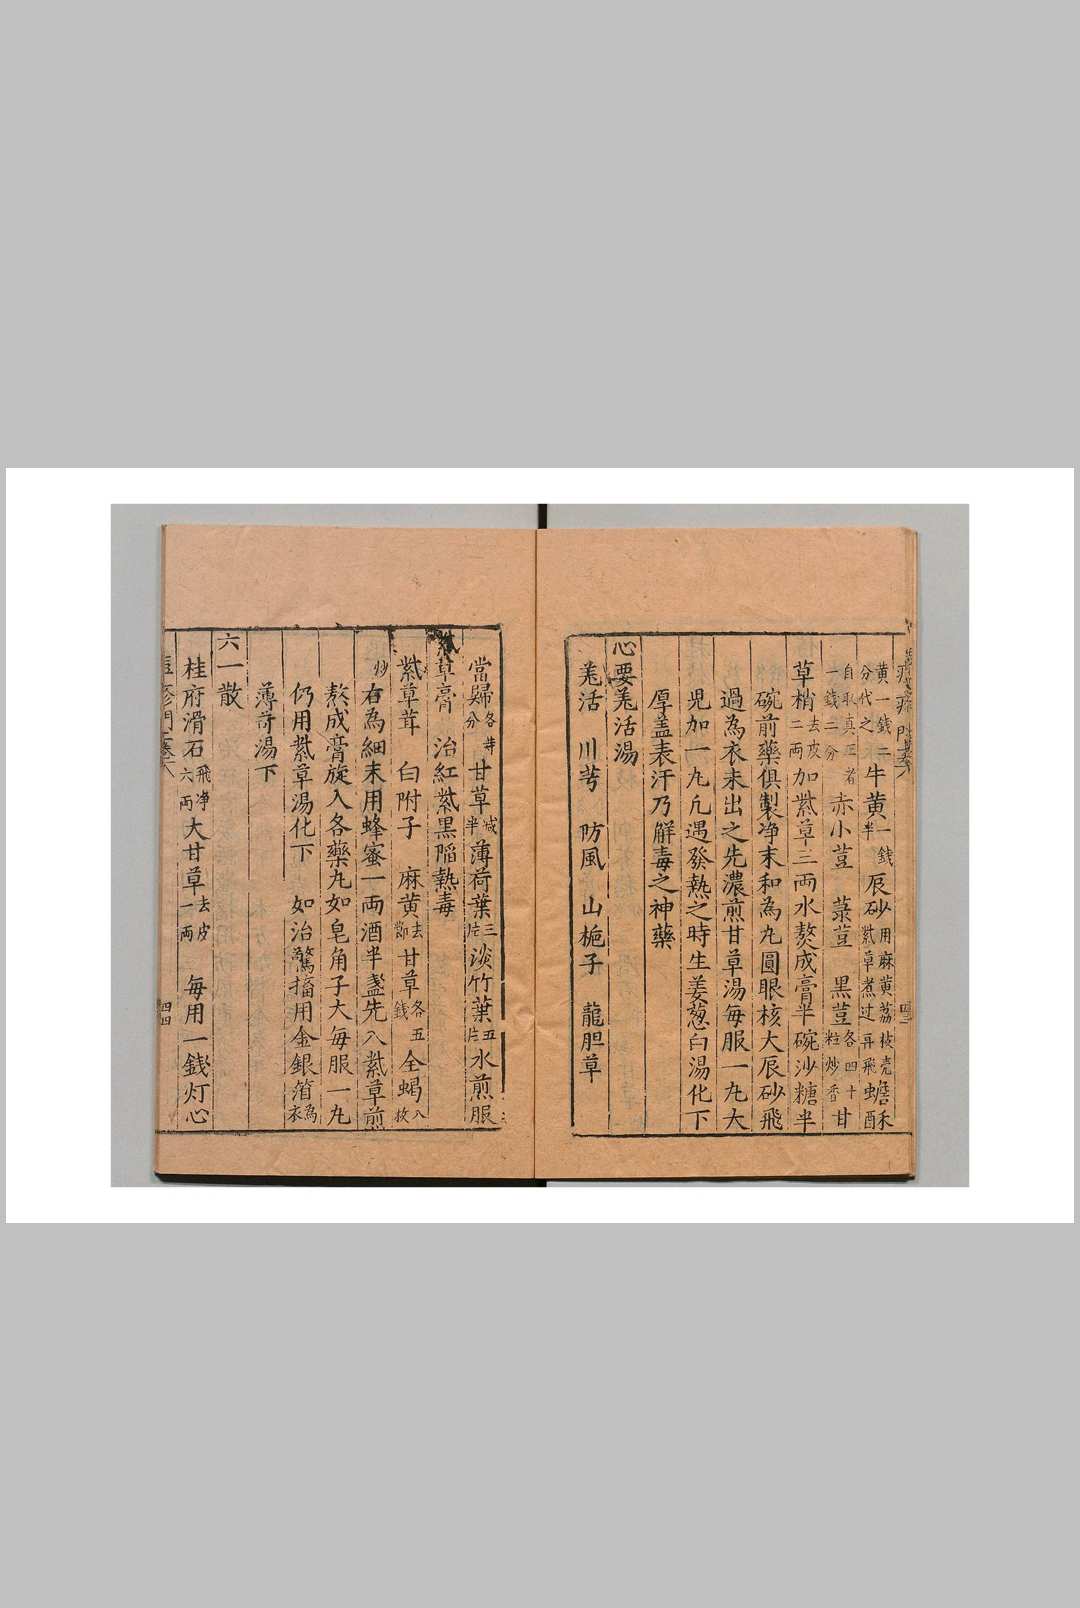 黃一錢二分代之牛黃一錢半辰砂用麻黃荔枝壳紫草煮过再飛蟾酥
一錢二分自取真正者赤小荳 菉荳 黑荳各四十粒炒香甘
草梢去皮二両加紫草三両水熬成膏半碗沙糖半
碗前藥俱製净末和為丸圓眼核大辰砂飛
過為衣未出之先濃煎甘草湯每服一丸大
児加一丸凢遇發熱之時生姜葱白湯化下
厚盖表汗乃解毒之神藥
心要羗活湯
羗活 川芎 防風 山梔子 龍胆草
當歸各 分甘草 半薄荷葉三片淡竹葉五片水煎服
紫草膏 治紅紫黑陷熱毒
紫草茸 白附子 麻黃去節 甘草各五錢全蝎八枚
炒右為細末用蜂蜜一両酒半盞先入紫草煎
熬成膏旋入各藥丸如皂角子大每服一丸
仍用紫草湯化下 如治驚搐用金銀箔為衣
薄荷湯下
六一散
桂府滑石飛净六両大甘草去皮一両 每用一錢灯心